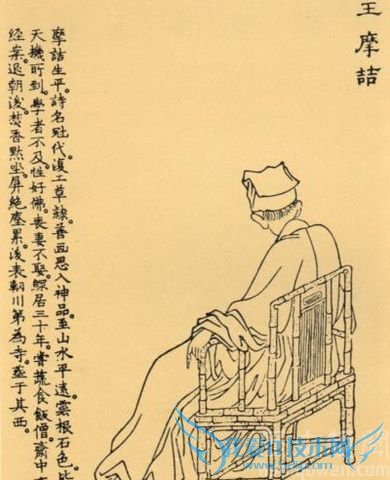 王摩詰
摩詰生平。詩名冠代。復工草隸。善画思入神品。至山水平遠。雲根石色。
天機所到。學者不及。性好佛。喪妻不娶。鰥居三十年。嘗蔬食飯僧。齋中
经案。退朝後。焚香默坐。屏絕塵累。後表輞川第為寺。塟于其西。